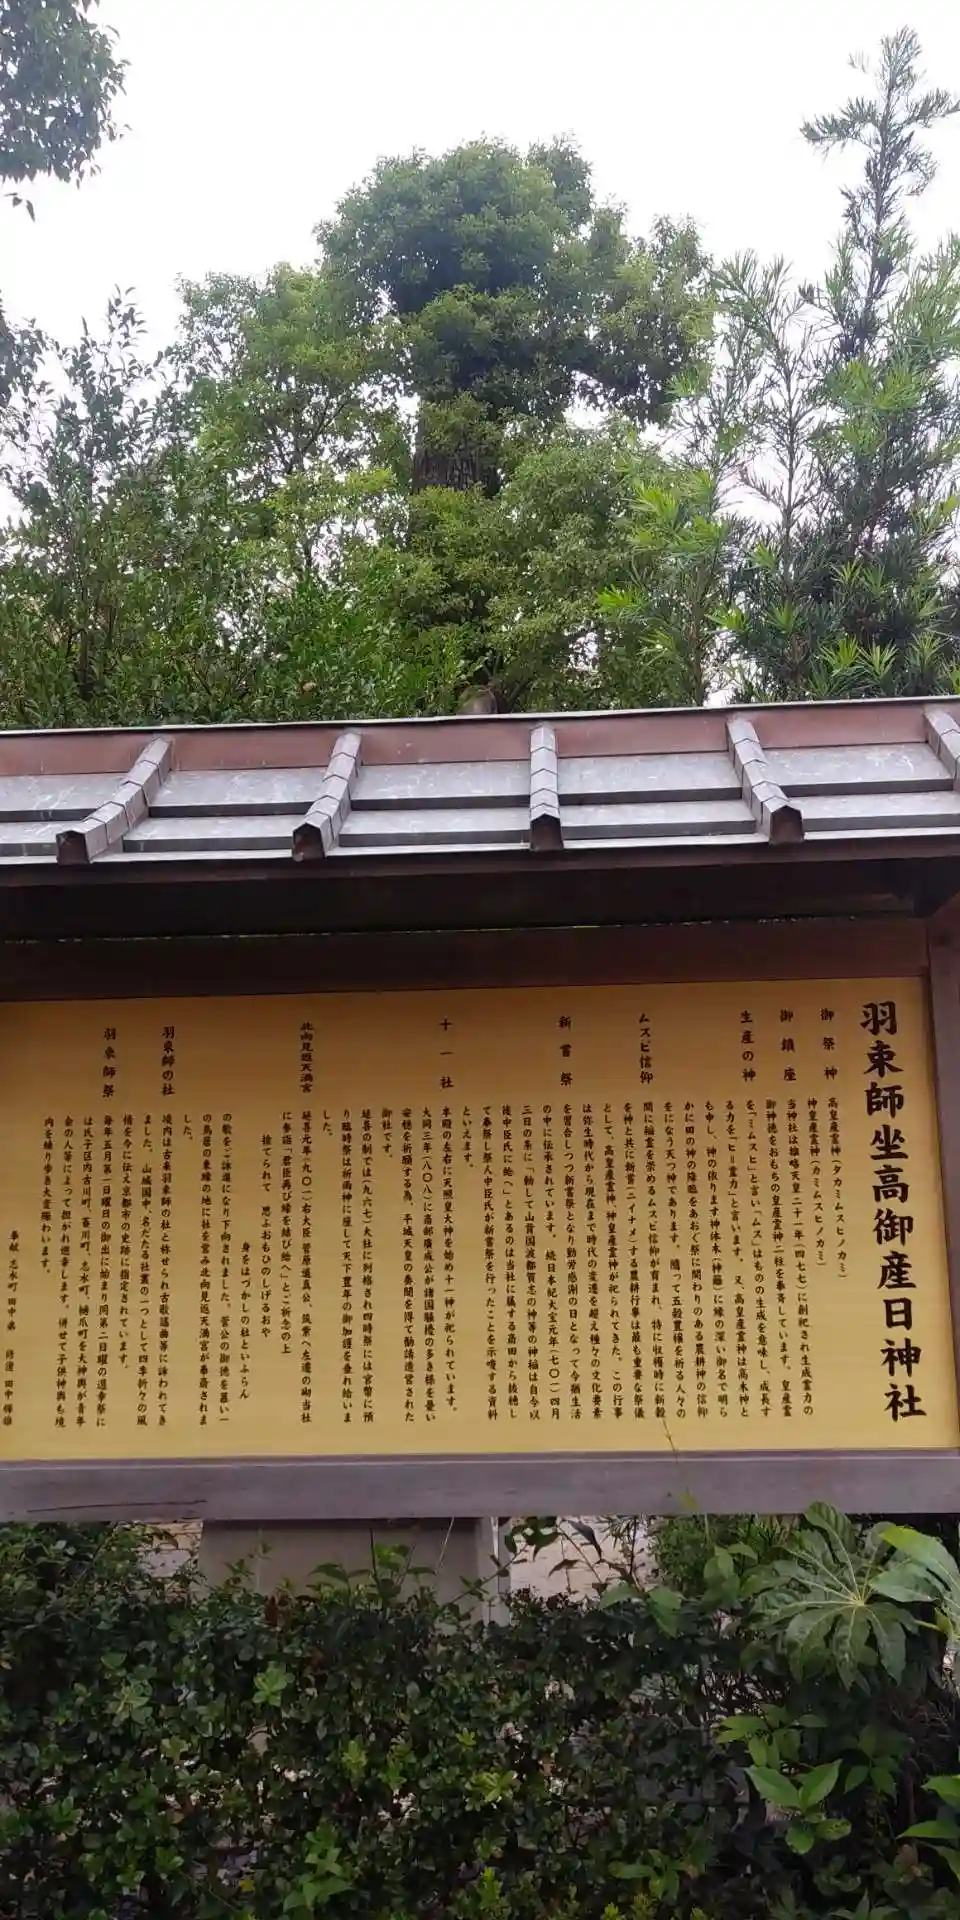 羽束師坐高御産日神社
御祭神 高皇産霊神(タカミムスヒノカミ)
神皇産霊神(カミムスヒノカミ)
御鎮座 当神社は雄略天皇二十一年(四七七)に創祀され生成霊力の
御神徳をおもちの皇産霊神二柱を奉斎しています。皇産霊
生産の神 を「ミムスヒ」と言い「ムス」はものの生成を意味し、成長す
る力を「ヒ=霊力」と言います。又、高皇産霊神は高木神と
も申し、神の依ります神体木(神籬)に縁の深い御名で明ら
かに田の神の降臨をあおぐ祭に関わりのある農耕神の信仰
をになう天つ神であります。随って五穀豊穣を祈る人々の
ムスビ信仰 間に稲霊を崇めるムスビ信仰が育まれ、特に収穫時に新穀
を神と共に新嘗(ニイナメ)する農耕行事は最も重要な祭儀
として、高皇産霊神、神皇産霊神が祀られてきた。この行事
は弥生時代から現在まで時代の変遷を超え種々の文化要素
新嘗祭 を習合しつつ新嘗祭となり勤労感謝の日となって今猶生活
の中に伝承されています。続日本紀大宝元年(七〇一)四月
三日の条に「勅して山背国波都賀志の神等の神稲は自今以
後中臣氏に給へ」とあるのは当社に属する斎田から抜穂し
て奉祭し祭人中臣氏が新嘗祭を行ったことを示唆する資料
といえます。
十一社 本殿の左右に天照皇大神を始め十一神が祀られています。
大同三年(八〇八)に斎部廣成公が諸国騒擾の多き様を憂い
安穏を祈願する為、平城天皇の奏聞を得て勧請造営された
御社です。
延喜の制では(九六七)大社に列格され四時祭には官幣に預
り臨時祭は祈雨神に座して天下豊年の御加護を垂れ給いま
した。
北向見返天満宮 延喜元年(九〇一)右大臣菅原道真公、筑紫へ左遷の砌当社
に参詣「君臣再び縁を結び給へ」とご祈念の上
捨てられて 思ふおもひのしげるおや
身をはづかしの社といふらん
の歌をご詠進になり下向されました。菅公の御徳を慕い一
の鳥居の東縁の地に社を営み北向見返天満宮が奉斎されま
した。
羽束師の社 境内は古来羽束師の社と称せられ古歌謡曲等に詠われてき
ました。山城国中、名だたる社叢の一つとして四季折々の風
情を今に伝え京都市の史跡に指定されています。
羽束師祭 毎年五月第一日曜日の御出に始まり同第二日曜の還幸祭に
は氏子区内古川町、菱川町、志水町、樋爪町を大神輿が青年
会の人等によって担がれ巡幸します。併せて子供神輿も境
内を練り歩き大変賑わいます。
奉献 志水町 田中 修復 田中